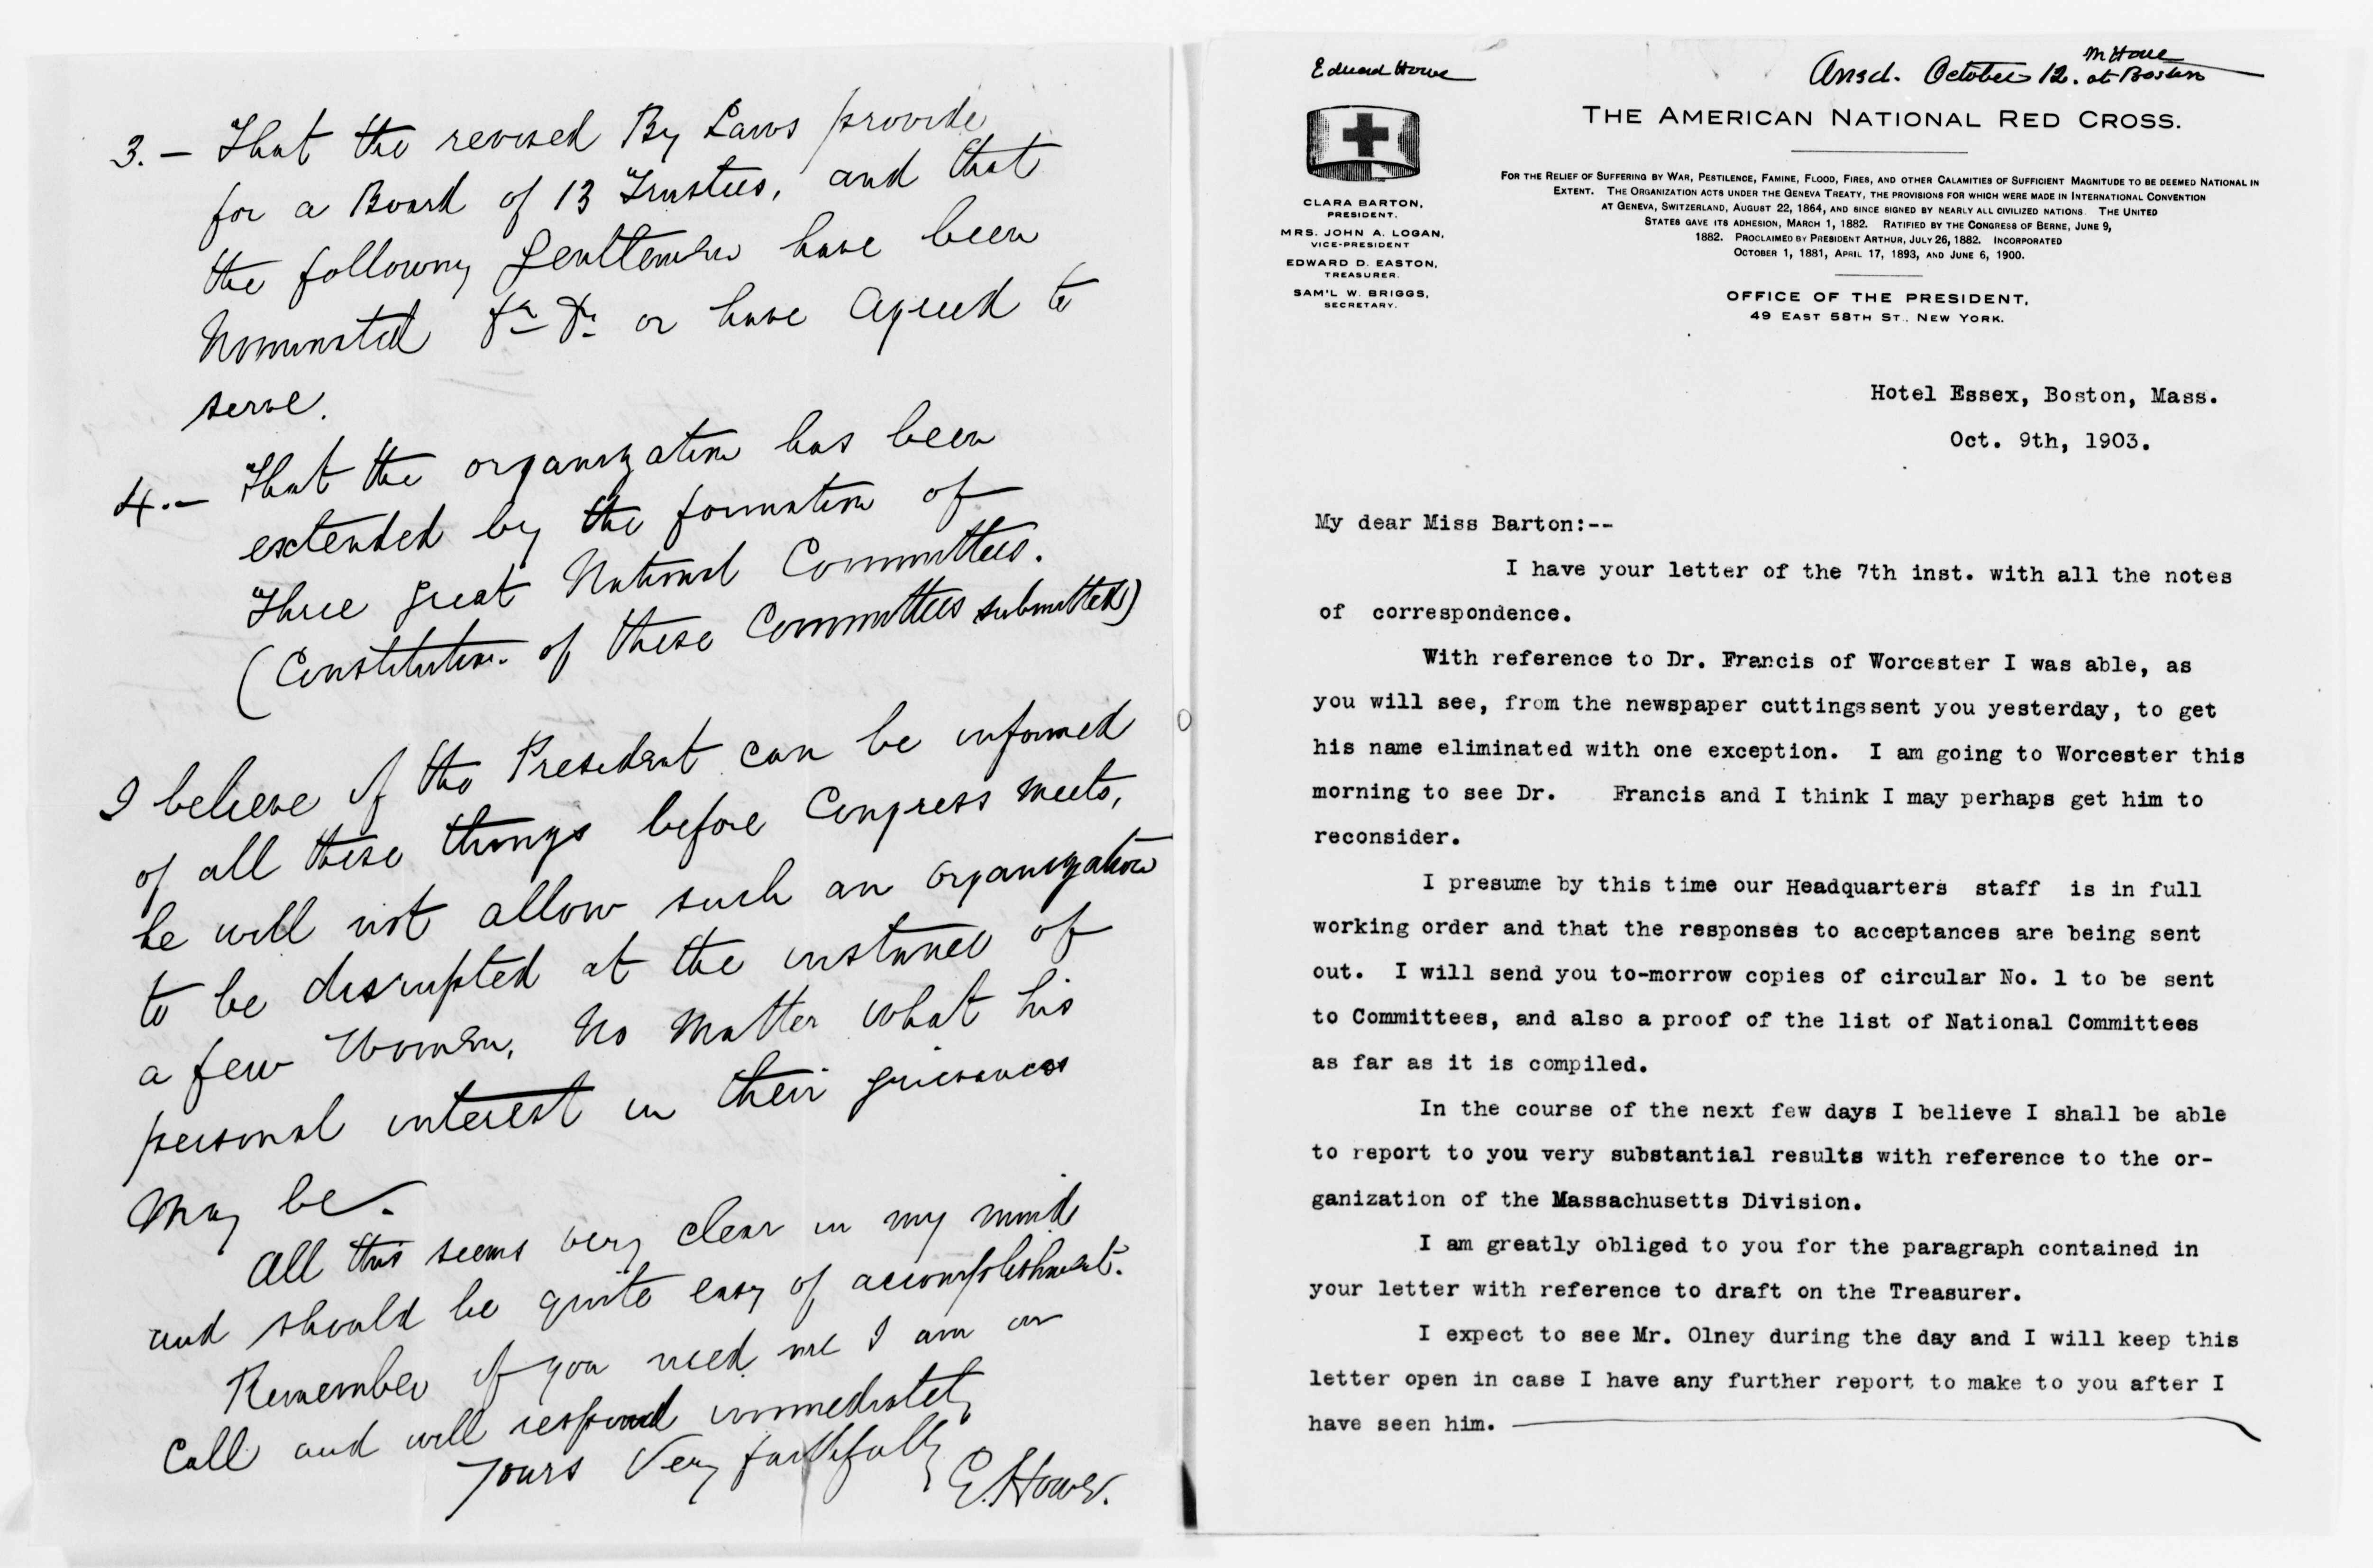 3. — That the revised By Laws provide
for a Board of 13 Trustees, and that
the following gentlemen have been
nominated &c &c or have agreed to
serve.
4. — That the organization has been
extended by the formation of
Three great National Committees.
(Constitution of these Committees submitted)
I believe if the President can be informed
of all these things before Congress meets,
he will not allow such an organization
to be disrupted at the instance of
a few Women, no matter what his
personal interest in their grievances
may be.
All this seems very clear in my mind
and should be quite easy of accomplishment.
Remember if you need me I am on
call and will respond immediately
Yours Very faithfully
E. Howe.
Edward Howe
Ansd. October 12. M Howe at Boston
THE AMERICAN NATIONAL RED CROSS.
FOR THE RELIEF OF SUFFERING BY WAR, PESTILENCE, FAMINE, FLOOD, FIRES, AND OTHER CALAMITIES OF SUFFICIENT MAGNITUDE TO BE DEEMED NATIONAL IN
EXTENT. THE ORGANIZATION ACTS UNDER THE GENEVA TREATY, THE PROVISIONS FOR WHICH WERE MADE IN INTERNATIONAL CONVENTION
AT GENEVA, SWITZERLAND, AUGUST 22, 1864, AND SINCE SIGNED BY NEARLY ALL CIVILIZED NATIONS. THE UNITED
STATES GAVE ITS ADHESION, MARCH 1, 1882. RATIFIED BY THE CONGRESS OF BERNE, JUNE 9,
1882. PROCLAIMED BY PRESIDENT ARTHUR, JULY 26, 1882. INCORPORATED
OCTOBER 1, 1881, APRIL 17, 1893, AND JUNE 6, 1900.
CLARA BARTON,
PRESIDENT.
MRS. JOHN A. LOGAN,
VICE-PRESIDENT
EDWARD D. EASTON,
TREASURER.
SAM'L W. BRIGGS,
SECRETARY.
OFFICE OF THE PRESIDENT,
49 EAST 58TH ST., NEW YORK.
Hotel Essex, Boston, Mass.
Oct. 9th, 1903.
My dear Miss Barton:--
I have your letter of the 7th inst. with all the notes
of correspondence.
With reference to Dr. Francis of Worcester I was able, as
you will see, from the newspaper cuttingssent you yesterday, to get
his name eliminated with one exception. I am going to Worcester this
morning to see Dr. Francis and I think I may perhaps get him to
reconsider.
I presume by this time our Headquarters staff is in full
working order and that the responses to acceptances are being sent
out. I will send you to-morrow copies of circular No. 1 to be sent
to Committees, and also a proof of the list of National Committees
as far as it is compiled.
In the course of the next few days I believe I shall be able
to report to you very substantial results with reference to the or-
ganization of the Massachusetts Division.
I am greatly obliged to you for the paragraph contained in
your letter with reference to draft on the Treasurer.
I expect to see Mr. Olney during the day and I will keep this
letter open in case I have any further report to make to you after I
have seen him.